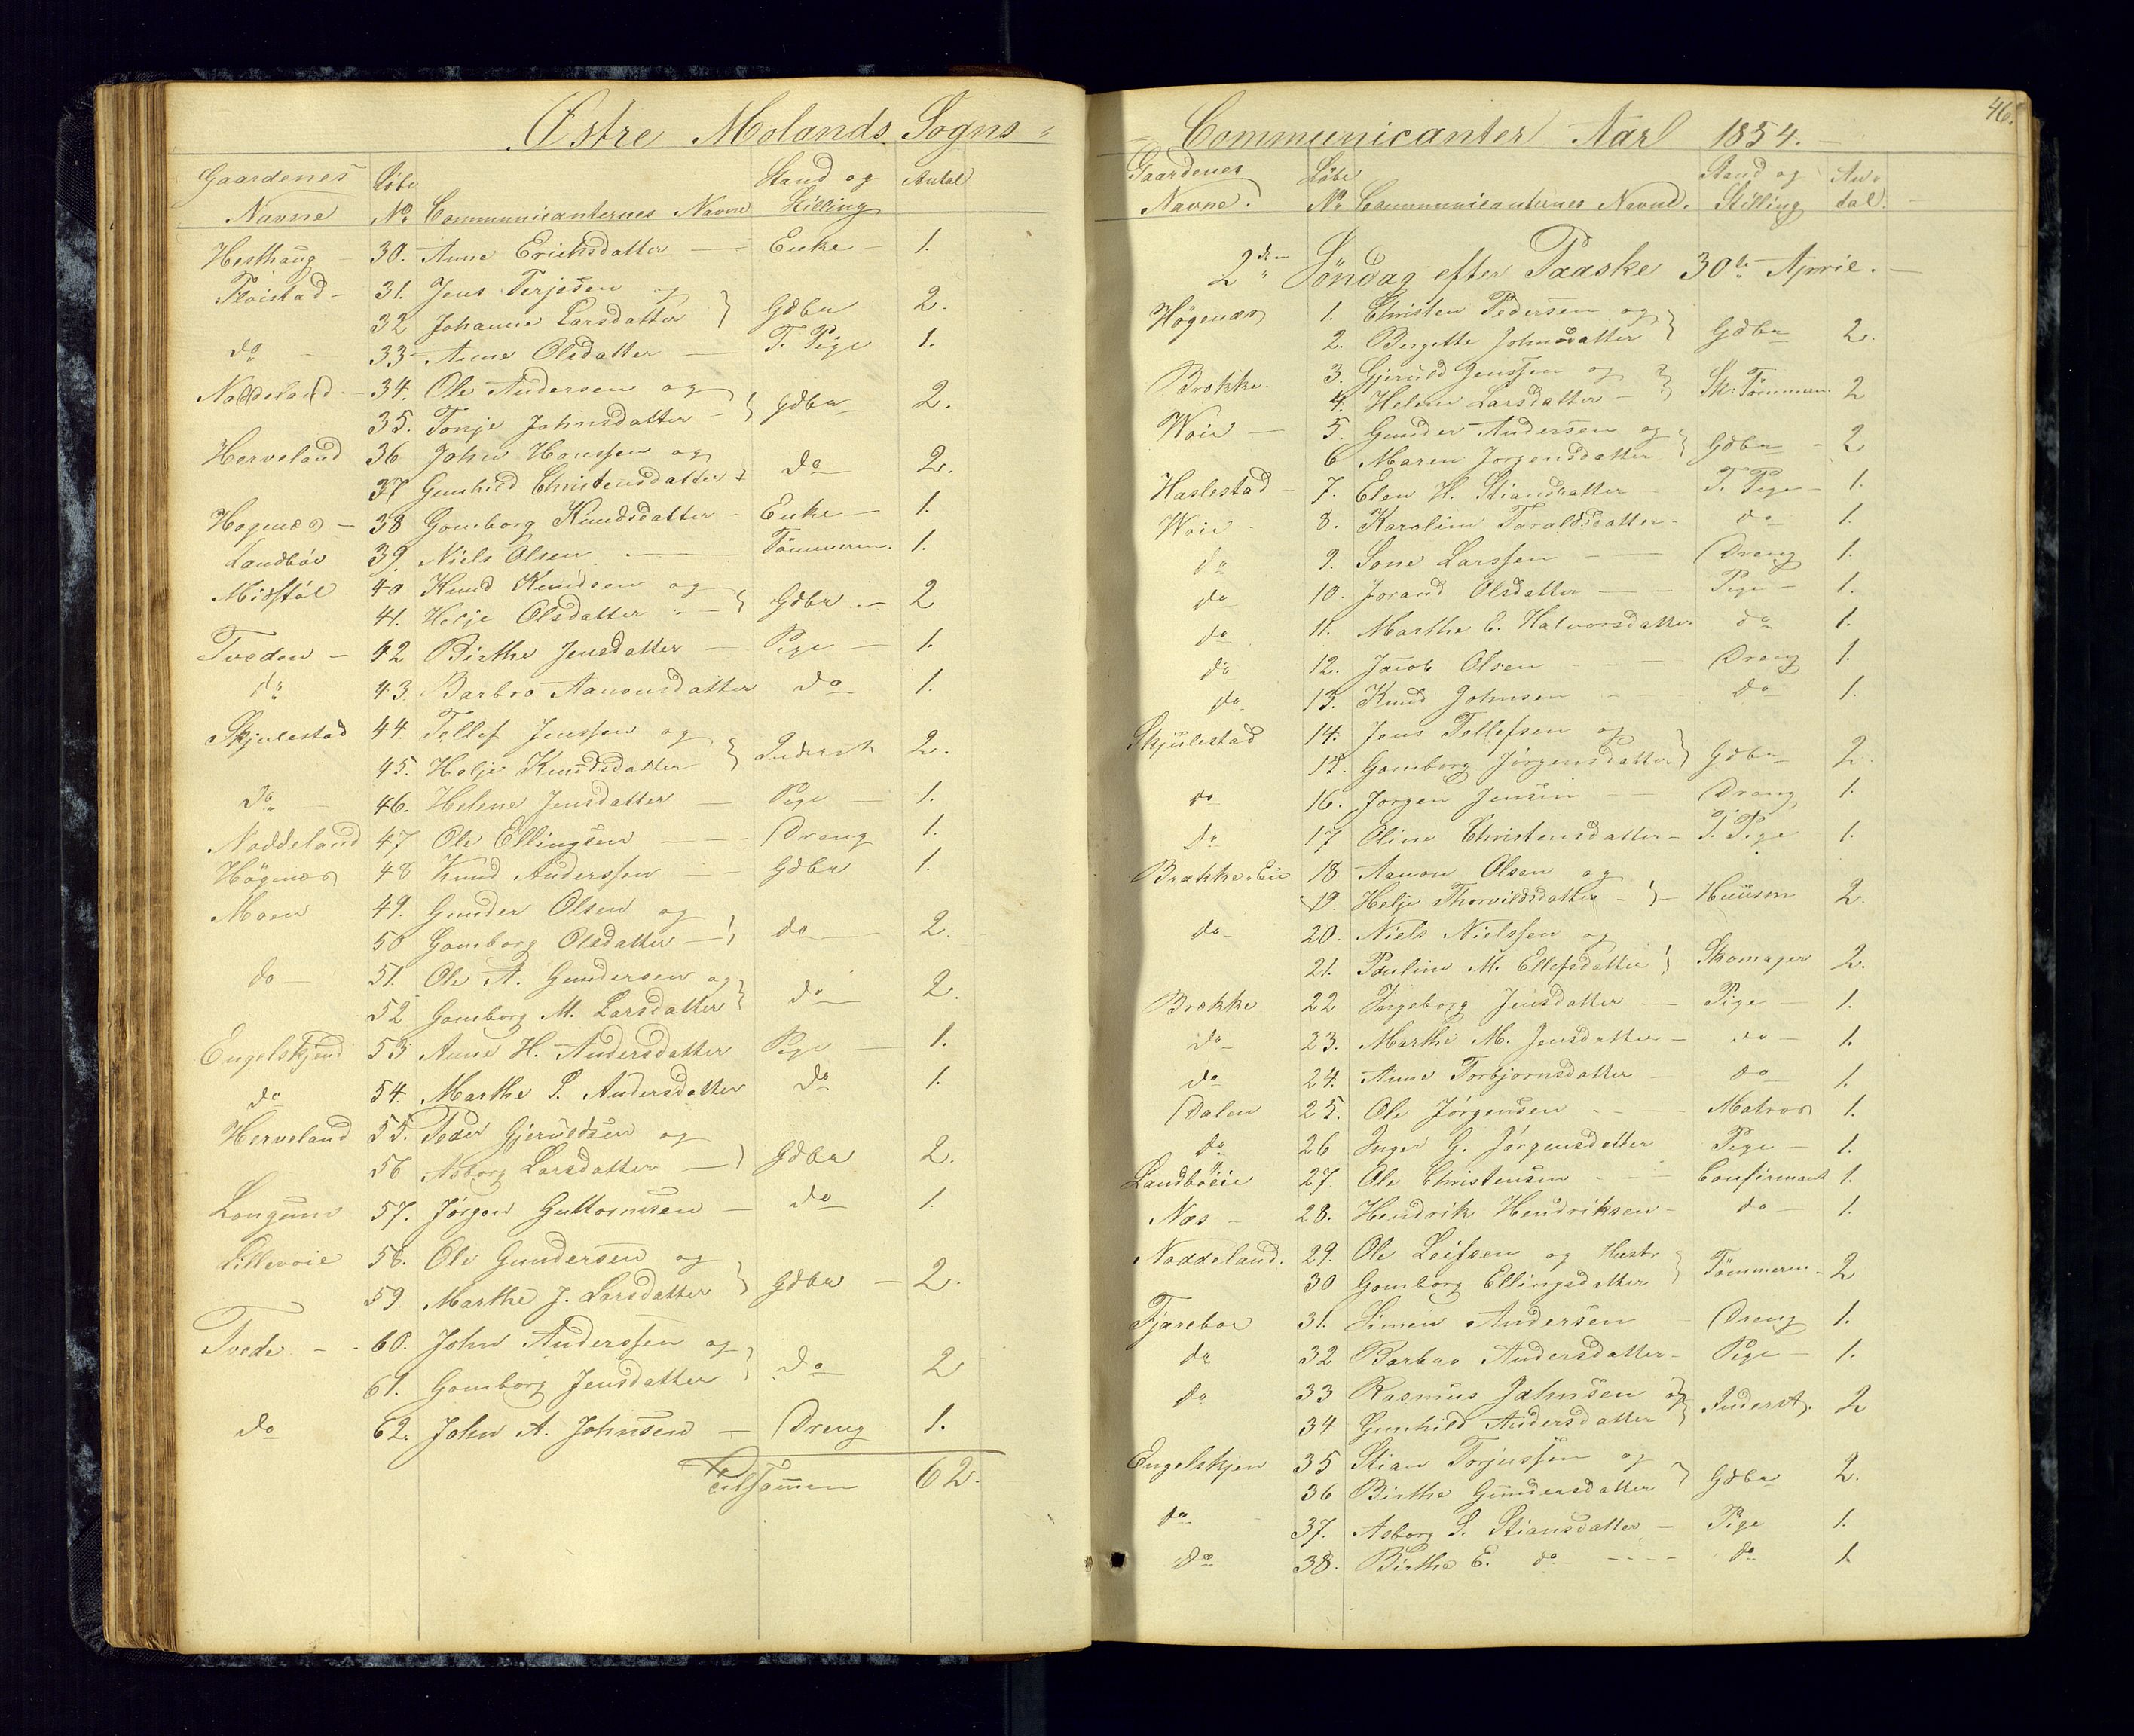 Østre Molands Sogns
Gaardenes Navne Løbe No Communicanternes Navne Stand og Stilling Antal
Hesthaug - 30. Anne Erichsdatter - Enke - 1.
Fløistad - 31. Jens Terjesen og
32 Johanne Larsdatter } Gdbr 2.
do - 33 - Anne Olsdatter - T. Pige 1.
Noddeland - 34. Ole Andersen og
35. Tonje Johnsdatter - } Gdbr 2.
Herveland 36 John Hanssen og
37 Gunhild Christensdatter } do 2.
Høgenæs - 38 Gomborg Knudsdatter - Enke - 1.
Landbøe 39. Niels Olsen - Tömmerm. 1.
Midstøl 40 Knud Knudsen og
41. Helje Olsdatter - } Gdbr. - 2
Tveden - 42 Birthe Jensdatter - Pige - 1.
do 43. Barbro Aanonsdatter do 1.
Skjulestad 44. Tellef Jenssen og
45. Helje Knudsdatter } Inderst 2.
do - 46. Helene Jensdatter - Pige - 1.
Noddeland 47 Ole Ellingsen - Dreng 1.
Högenæs 48 Knud Anderssen - Gdbr 1.
Moen 49. Gunder Olsen og
50 Gomborg Olsdatter - } do - 2.
do - 51. Ole A. Gundersen og
52 Gomborg M. Larsdatter } do 2.
Engelskjend 53 Anne H. Andersdatter Pige - 1.
do 54. Marthe S. Andersdatter do 1.
Herveland 55. Peder Gjeruldsen og
56 Asborg Larsdatter - } Gdbr 2.
Longum 57. Jörgen Guttormsen - do 1.
Lillevoie 58. Ole Gundersen og
59. Marthe J. Larsdatter } Gdbr - 2.
Tvede - 60. John Anderssen og
61. Gomborg Jensdatter } do 2
do 62. John A. Johnsen - Dreng 1.
Tilsammen 62.
46.
Communicanter Aar 1854. -
Gaardenes Navne. Løbe No Communicanternes Navne. Stand og Stilling Antal.
2den Søndag efter Paaske 30te April. -
Högenæs 1. Christen Pedersen og
2. Bergette Johnsdatter } Gdbr 2.
Brække. 3. Gjeruld Jenssen og
4. Helene Larsdatter - } Sk. Tömmerm 2
Woie - 5. Gunder Andersen og
6 Maren Jorgensdatter } Gdbr - 2
Haslestad - 7. Elen H. Stiansdatter - T. Pige - 1.
Woie - 8. Karoline Taraldsdatter - do 1.
do 9. Sone Larssen - Dreng 1.
do 10. Jorand Olsdatter - Pige - 1.
do 11. Marthe E. Halvorsdatter do 1.
do 12. Jacob Olsen - Dreng 1.
do 13. Knud Johnsen - do 1.
Skjulestad 14. Jens Tellefsen og
15. Gomborg Jörgensdatter } Gdbr 2.
do 16. Jorgen Jensen - Dreng 1.
do 17 Oline Christensdatter - T. Pige 1.
Brække-Eie 18. Aanon Olsen og
19. Helje Thorvildsdatter - } - Huusm 2.
do 20. Niels Nielssen og
21. Pauline M. Ellefsdatter } Skomager 2.
Brække 22 Ingeborg Jensdatter - Pige - 1.
do 23. Marthe M. Jensdatter - do - 1.
do 24. Anne Torbjornsdatter - do 1.
Dalen 25. Ole Jörgensen - Matros 1.
do 26 Inger G. Jörgensdatter Pige - 1.
Landböeie 27. Ole Christensen - Confirmant 1.
Næs - 28. Hendrik Hendriksen - do - 1.
Noddeland. 29. Ole Leifsen og Hustr
30 Gomborg Ellingsdatter } Tömmerm - 2
Fjæreboe 31. Simen Andersen - Dreng 1.
do 32 Barbro Andersdatter - Pige - 1.
do 33 Rasmus Johnsen og
34 Gunhild Andersdatter } Inderst. 2
Engelskjen 35 Stian Torjussen og
36 Birthe Gundersdatter } Gdbr 2.
do 37. Asborg S. Stiansdatter - Pige 1.
do 38. Birthe E. do - do 1.